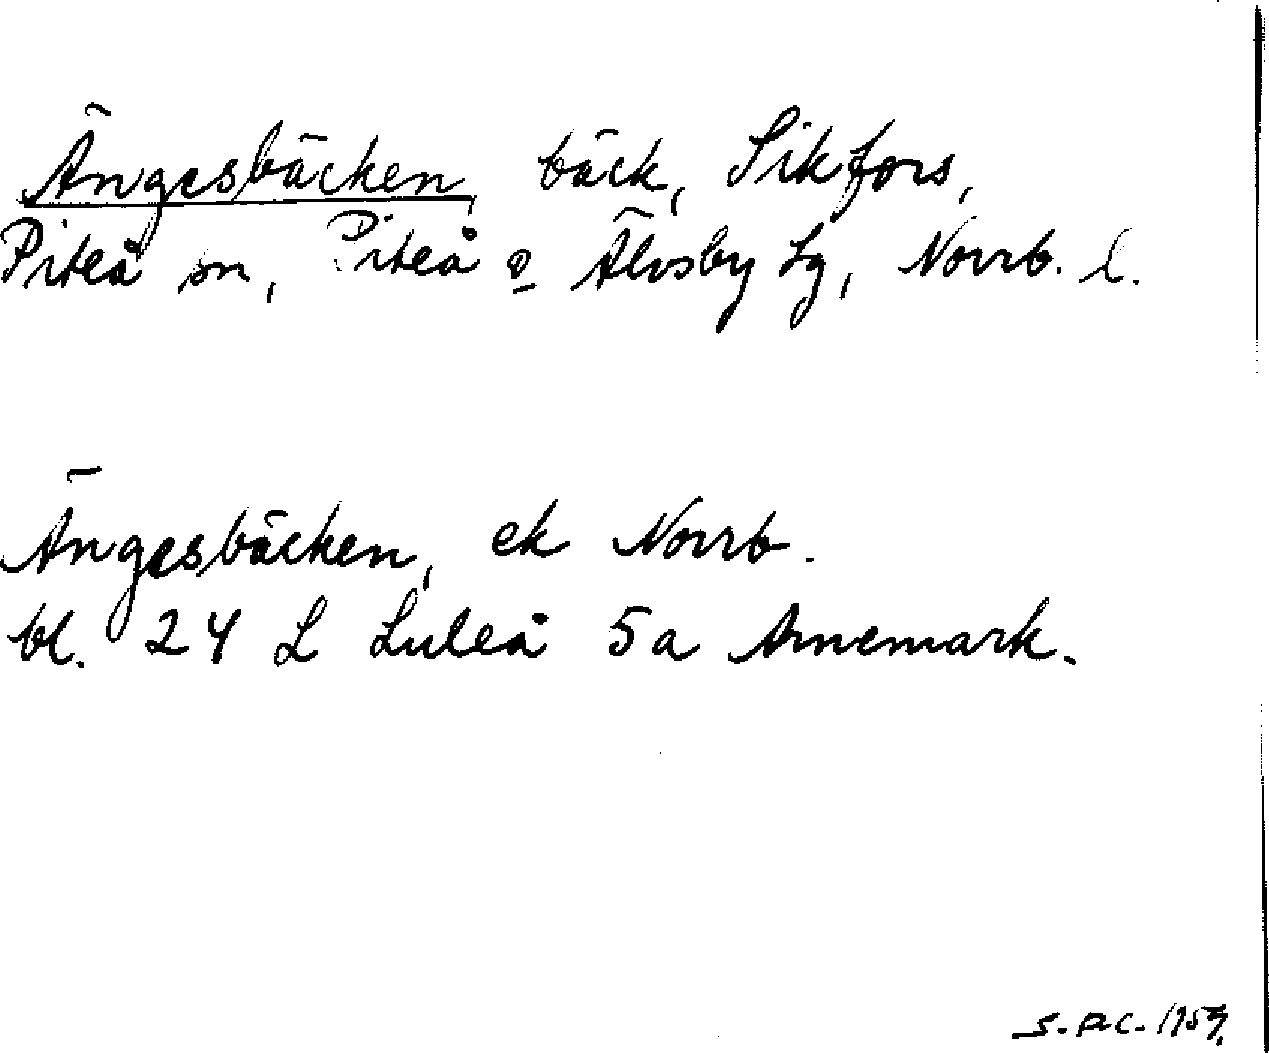 Ängesbäcken, bäck, Sikfors,
Piteå sn, Piteå o Älvsby tg, Norrb. l.
Ängesbäcken, ek Norrb.
bl. 24 L Luleå 5a Arnemark.
1959.